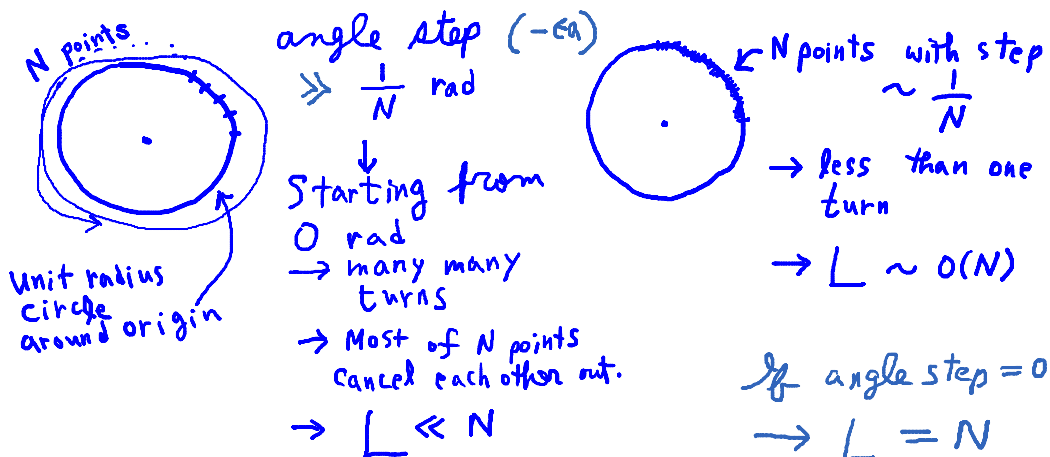 N points....
Unit radius
circle
around origin
angle step (-εa)
≫ 1/N rad
↓
Starting from
0 rad
→ many many
turns
→ Most of N points
cancel each other out.
→ L ≪ N
N points with step
~ 1/N
→ less than one
turn
→ L ~ O(N)
If angle step = 0
→ L = N